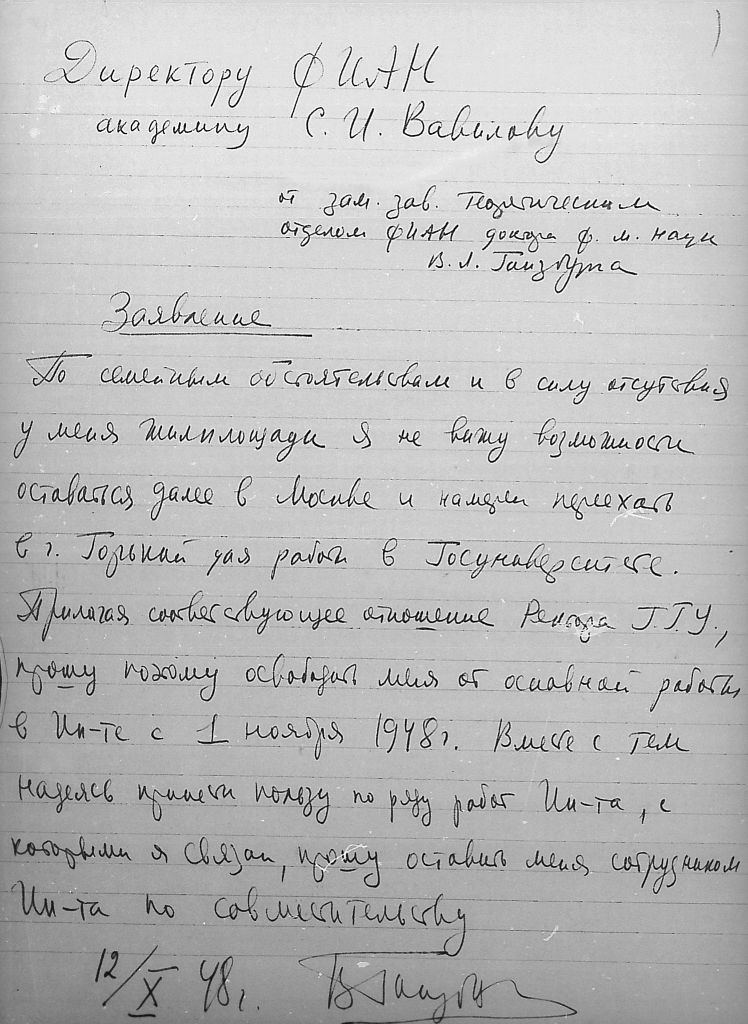 Директору ФИАН
академику С. И. Вавилову
от зам. зав. теоретическим
отделом ФИАН доктора ф. м. наук
В. Л. Гинзбурга
Заявление
По семейным обстоятельствам и в силу отсутствия
у меня жилплощади я не вижу возможности
оставаться далее в Москве и намерен переехать
в г. Горький для работы в Госуниверситете.
Прилагая соответствующее отношение Ректора Г.Г.У.,
прошу поэтому освободить меня от основной работы
в Ин-те с 1 ноября 1948 г. Вместе с тем
надеясь принести пользу по ряду работ Ин-та, с
которыми я связан, прошу оставить меня сотрудником
Ин-та по совместительству
12/X 48 г. В Гинзбург